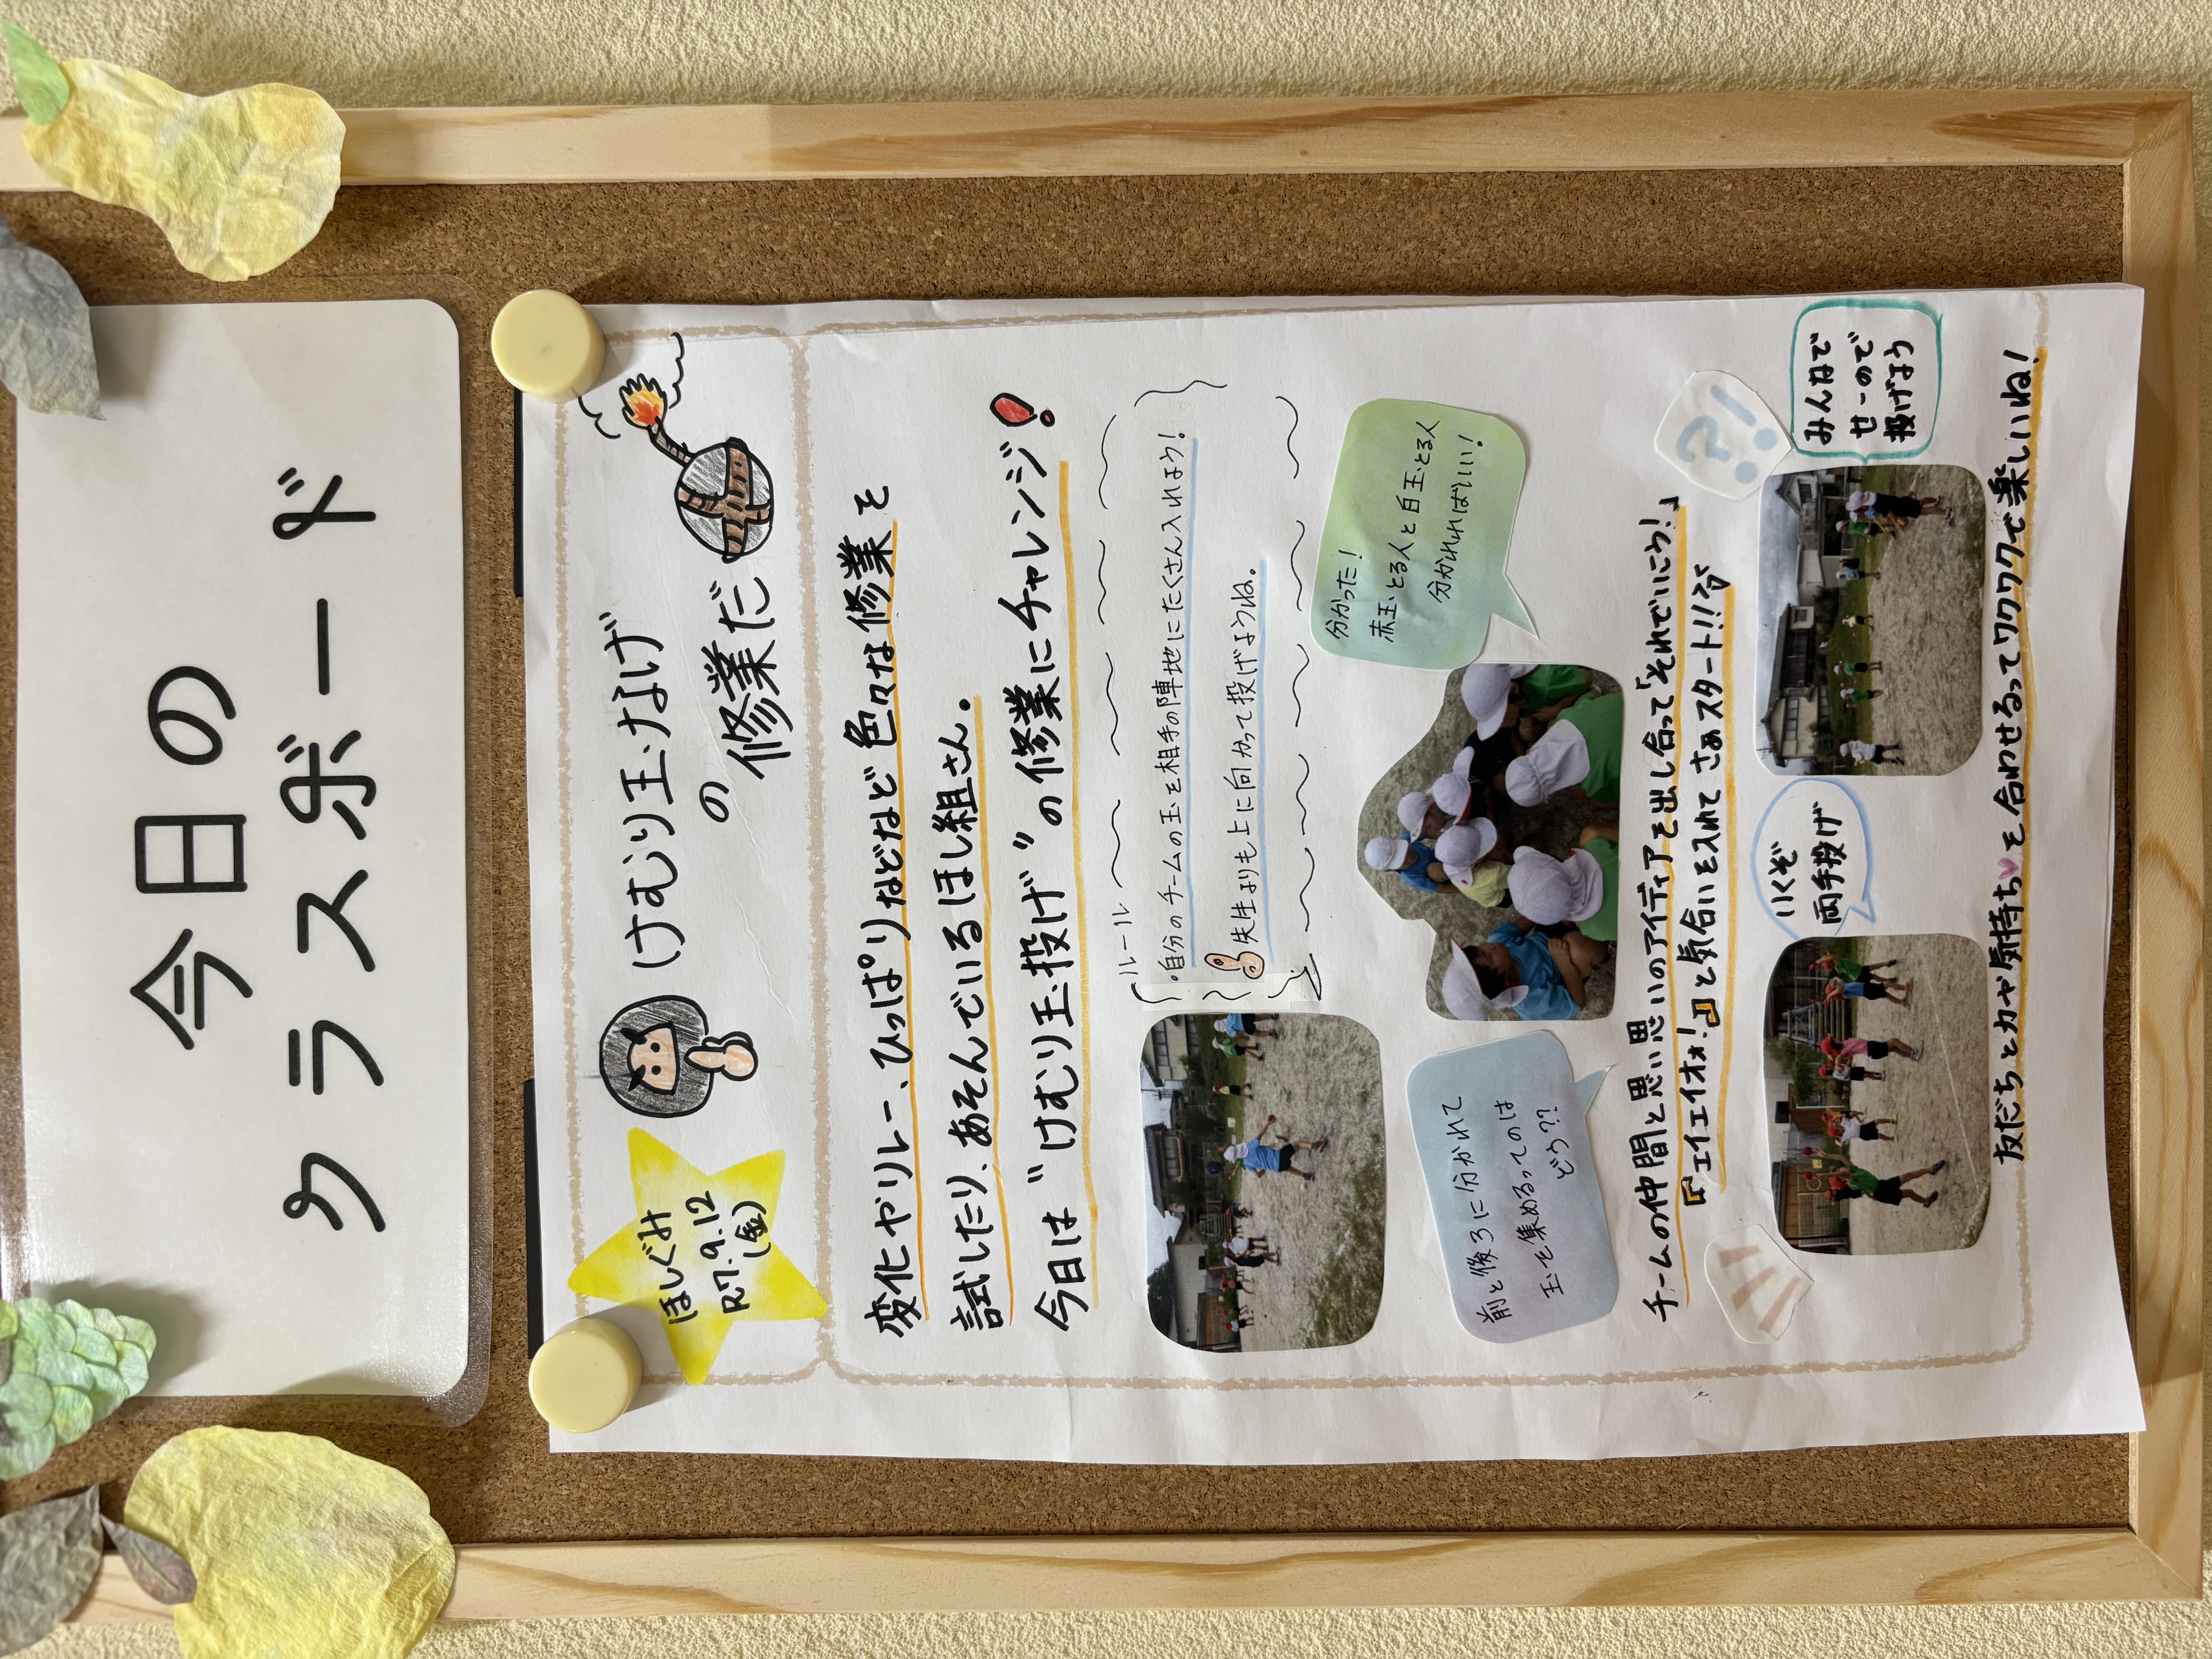 今日の
クラスボード
ほしぐみ
R7.9.12
(金)
けむり玉なげ
の
修業だ
変化やリレー、ひっぱりなどなど色々な修業を
試したり、あそんでいるほし組さん。
今日は“けむり玉投げ”の修業にチャレンジ!
ルール
・自分のチームの玉を相手の陣地にたくさん入れよう!
先生よりも上に向かって投げようね。
分かった!
赤玉とる人と白玉とる人
分かれればいい!
前と後ろに分かれて
玉を集めるってのは
どう??
チームの仲間と思い思いのアイディアを出し合って「それでいこう!」
『エイエイオォ!』と気合いを入れて さぁスタート!!!
?!
いくぞ
両手投げ
みんなで
せーのので
投げよう
友だちと力や気持ちを合わせるってワクワクで楽しいね!